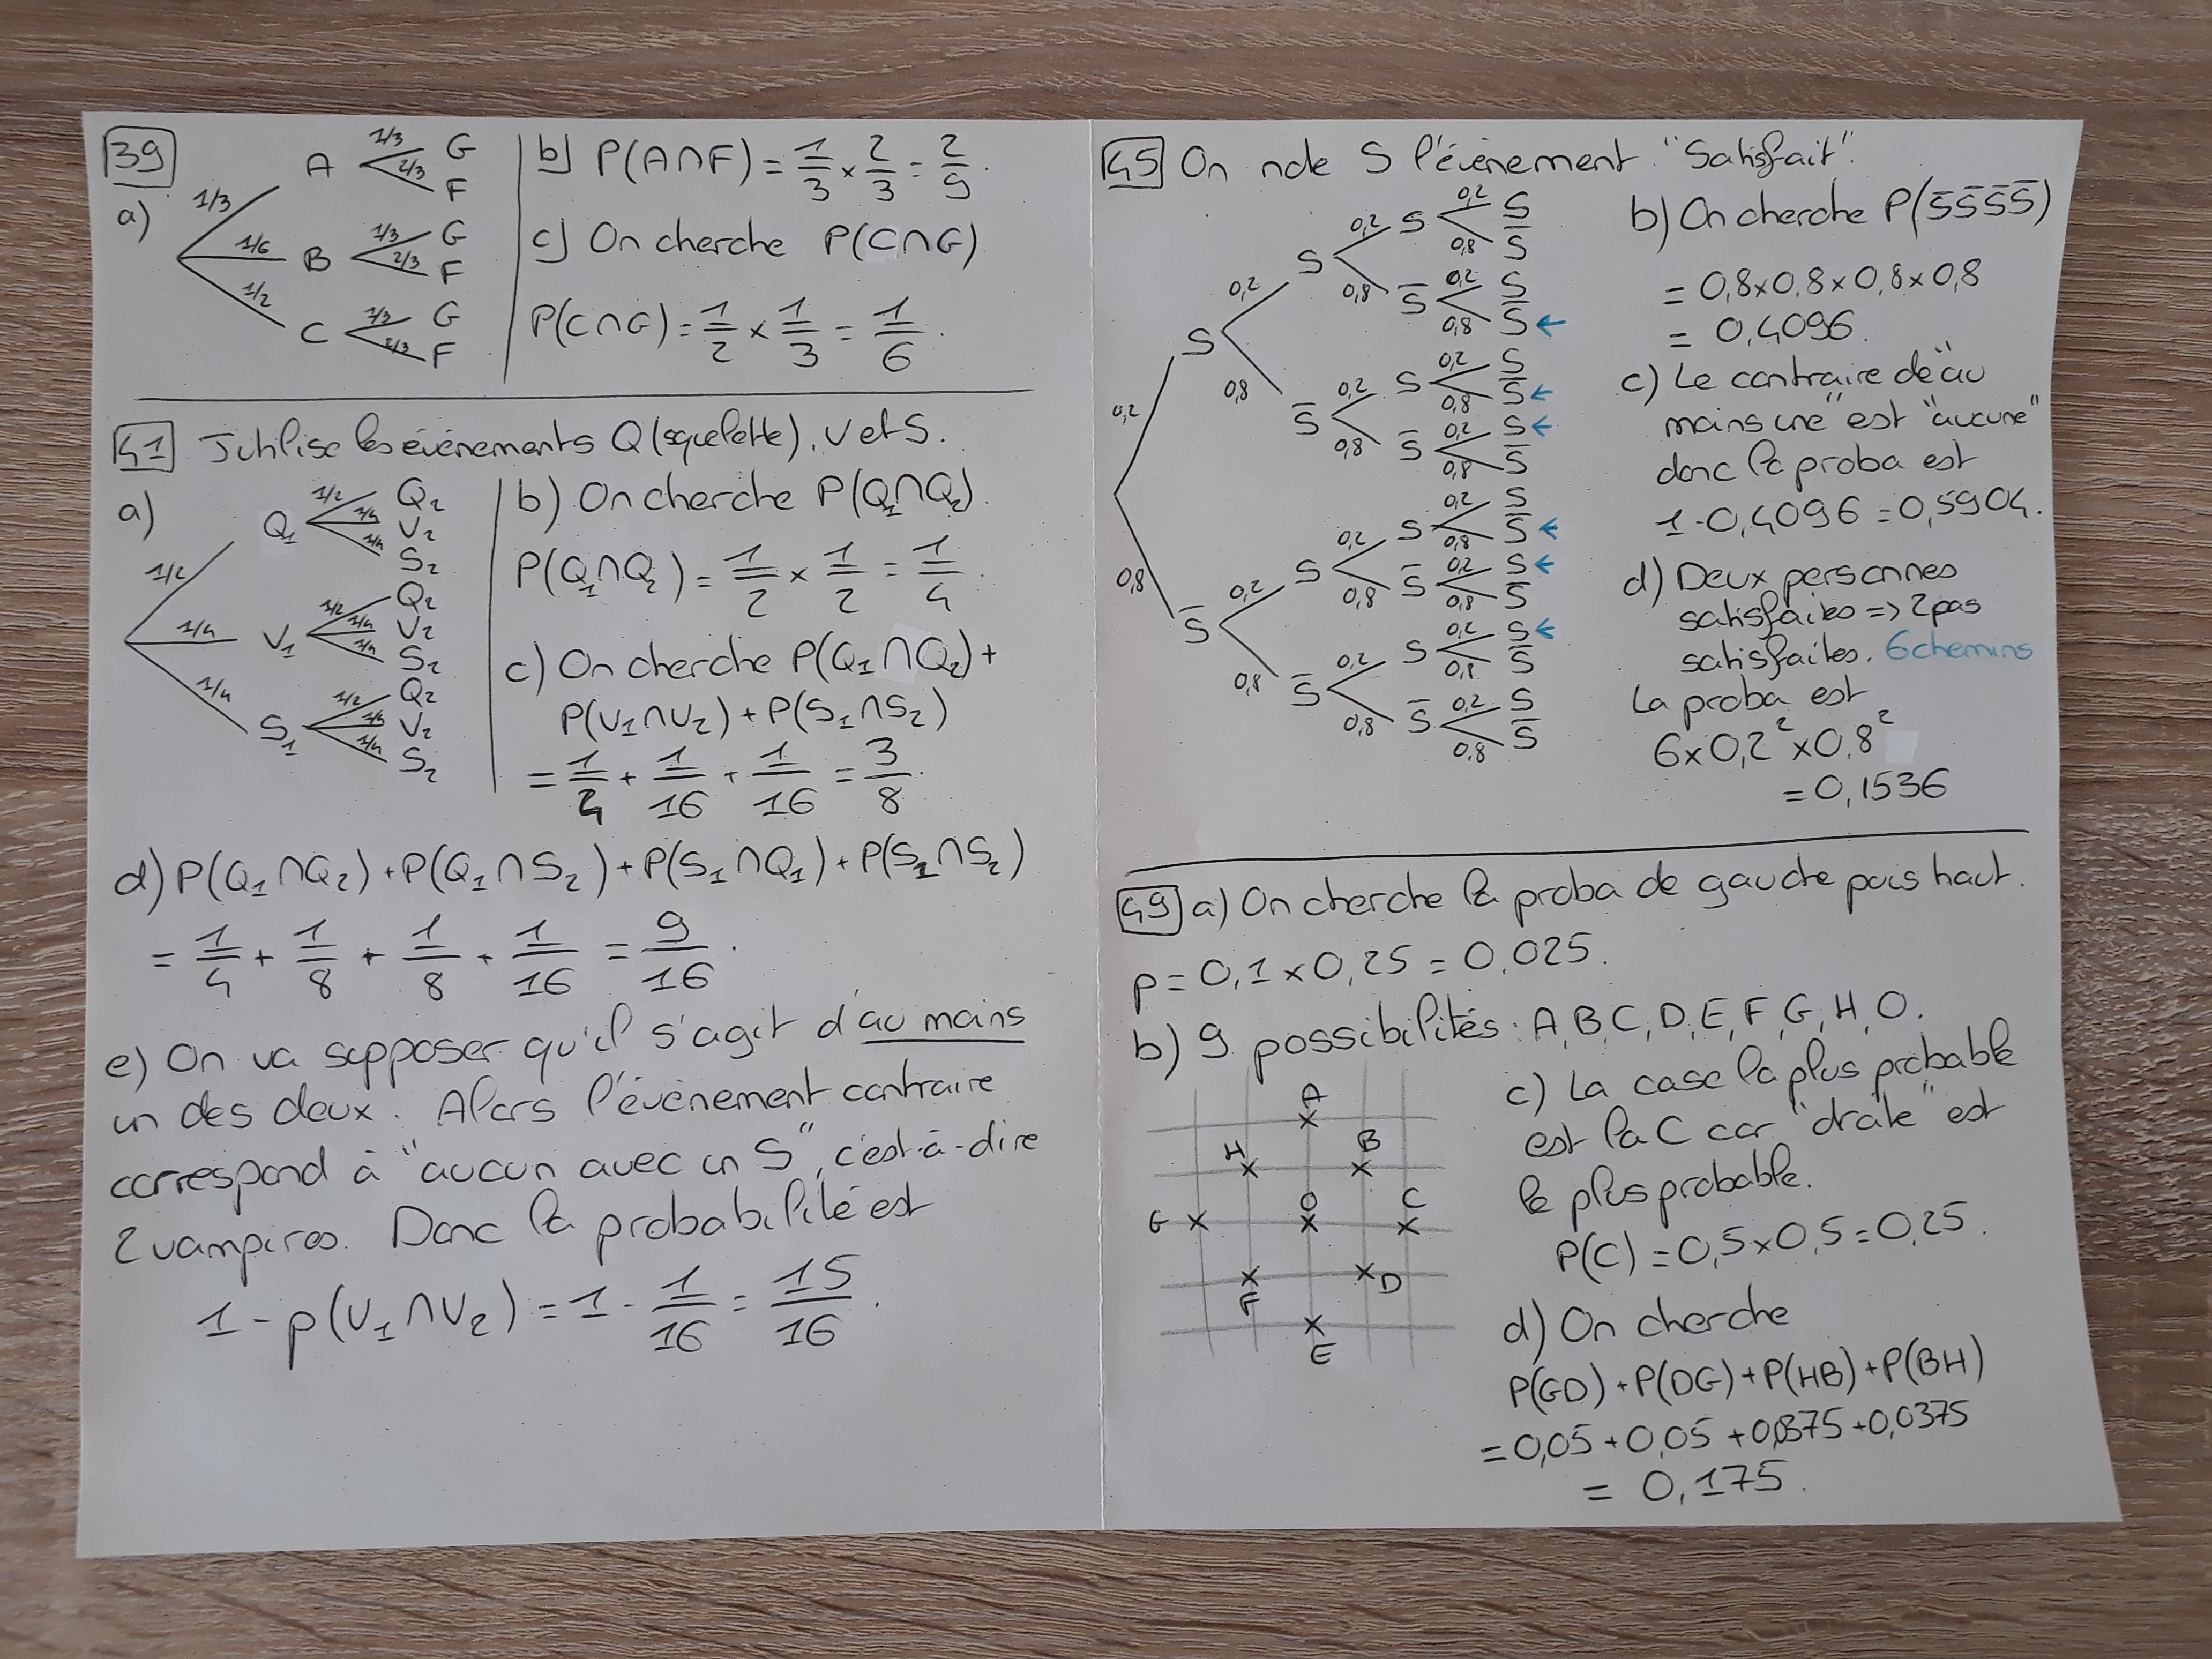 39
a)
1/3 A 1/3 G
2/3 F
1/6 B 1/3 G
2/3 F
1/2 C 1/3 G
2/3 F
b) P(A∩F) = 1/3 × 2/3 = 2/9.
c) On cherche P(C∩G)
P(C∩G) = 1/2 × 1/3 = 1/6.
41 J'utilise les évènements Q (squelette), V et S.
a)
1/2 Q₁ 1/2 Q₂
1/4 V₂
1/4 S₂
1/4 V₁ 1/2 Q₂
1/4 V₂
1/4 S₂
1/4 S₁ 1/2 Q₂
1/4 V₂
1/4 S₂
b) On cherche P(Q₁∩Q₂).
P(Q₁∩Q₂) = 1/2 × 1/2 = 1/4.
c) On cherche P(Q₁∩Q₂) +
P(V₁∩V₂) + P(S₁∩S₂)
= 1/4 + 1/16 + 1/16 = 3/8.
d) P(Q₁∩Q₂) + P(Q₁∩S₂) + P(S₁∩Q₁) + P(S₁∩S₂)
= 1/4 + 1/8 + 1/8 + 1/16 = 9/16.
e) On va supposer qu'il s'agit d'au moins
un des deux. Alors l'évènement contraire
correspond à "aucun avec un S", c'est-à-dire
2 vampires. Donc la probabilité est
1 - p(V₁∩V₂) = 1 - 1/16 = 15/16.
45 On note S l'évènement "Satisfait".
0,2 S 0,2 S 0,2 S 0,2 S
0,8 S̄
0,8 S̄ 0,2 S
0,8 S̄ ←
0,8 S̄ 0,2 S 0,2 S
0,8 S̄ ←
0,8 S̄ 0,2 S ←
0,8 S̄
0,8 S̄ 0,2 S 0,2 S 0,2 S
0,8 S̄ ←
0,8 S̄ 0,2 S ←
0,8 S̄
0,8 S̄ 0,2 S 0,2 S ←
0,8 S̄
0,8 S̄ 0,2 S
0,8 S̄
b) On cherche P(S̄S̄S̄S̄)
= 0,8×0,8×0,8×0,8
= 0,4096.
c) Le contraire de "au
moins une" est "aucune"
donc la proba est
1-0,4096 = 0,5904.
d) Deux personnes
satisfaites => 2 pas
satisfaites. 6 chemins
La proba est
6×0,2²×0,8²
= 0,1536
49 a) On cherche la proba de gauche puis haut.
p = 0,1 × 0,25 = 0,025.
b) 9 possibilités : A, B, C, D, E, F, G, H, O.
A
H B
G O C
F D
E
c) La case la plus probable
est la C car "droite" est
le plus probable.
P(C) = 0,5×0,5 = 0,25.
d) On cherche
P(GD) + P(DG) + P(HB) + P(BH)
= 0,05 + 0,05 + 0,0375 + 0,0375
= 0,175.